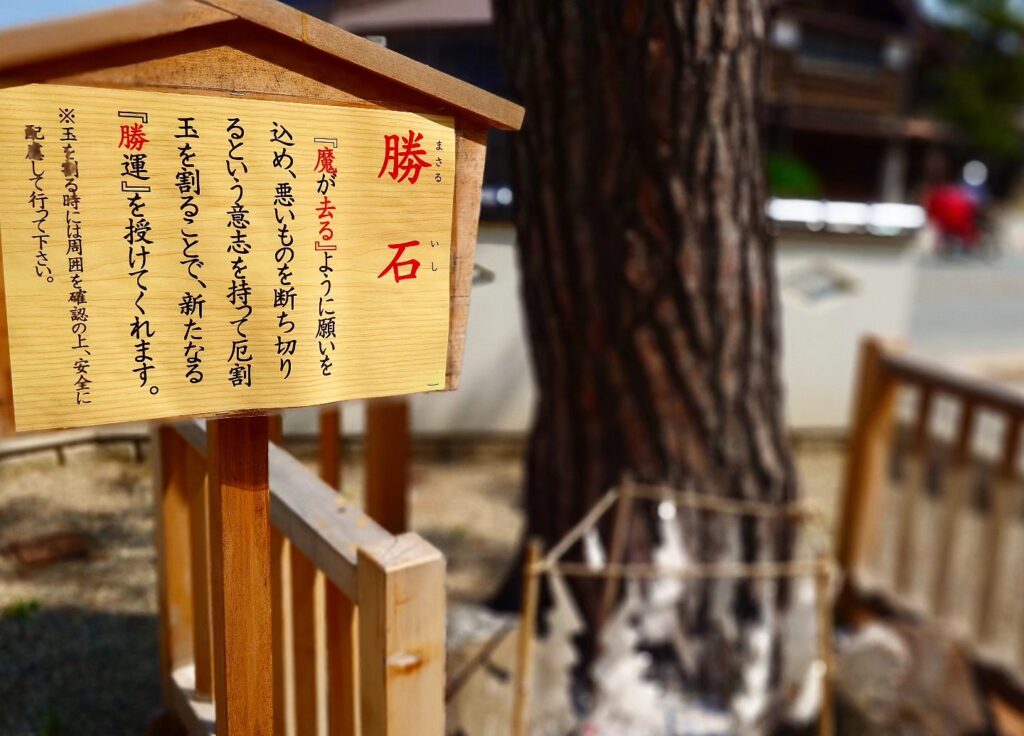 勝石
まさる いし
『魔が去る』ように願いを
込め、悪いものを断ち切り
るという意志を持って厄割
玉を割ることで、新たなる
『勝運』を授けてくれます。
※玉を割る時には周囲を確認の上、安全に
配慮して行って下さい。